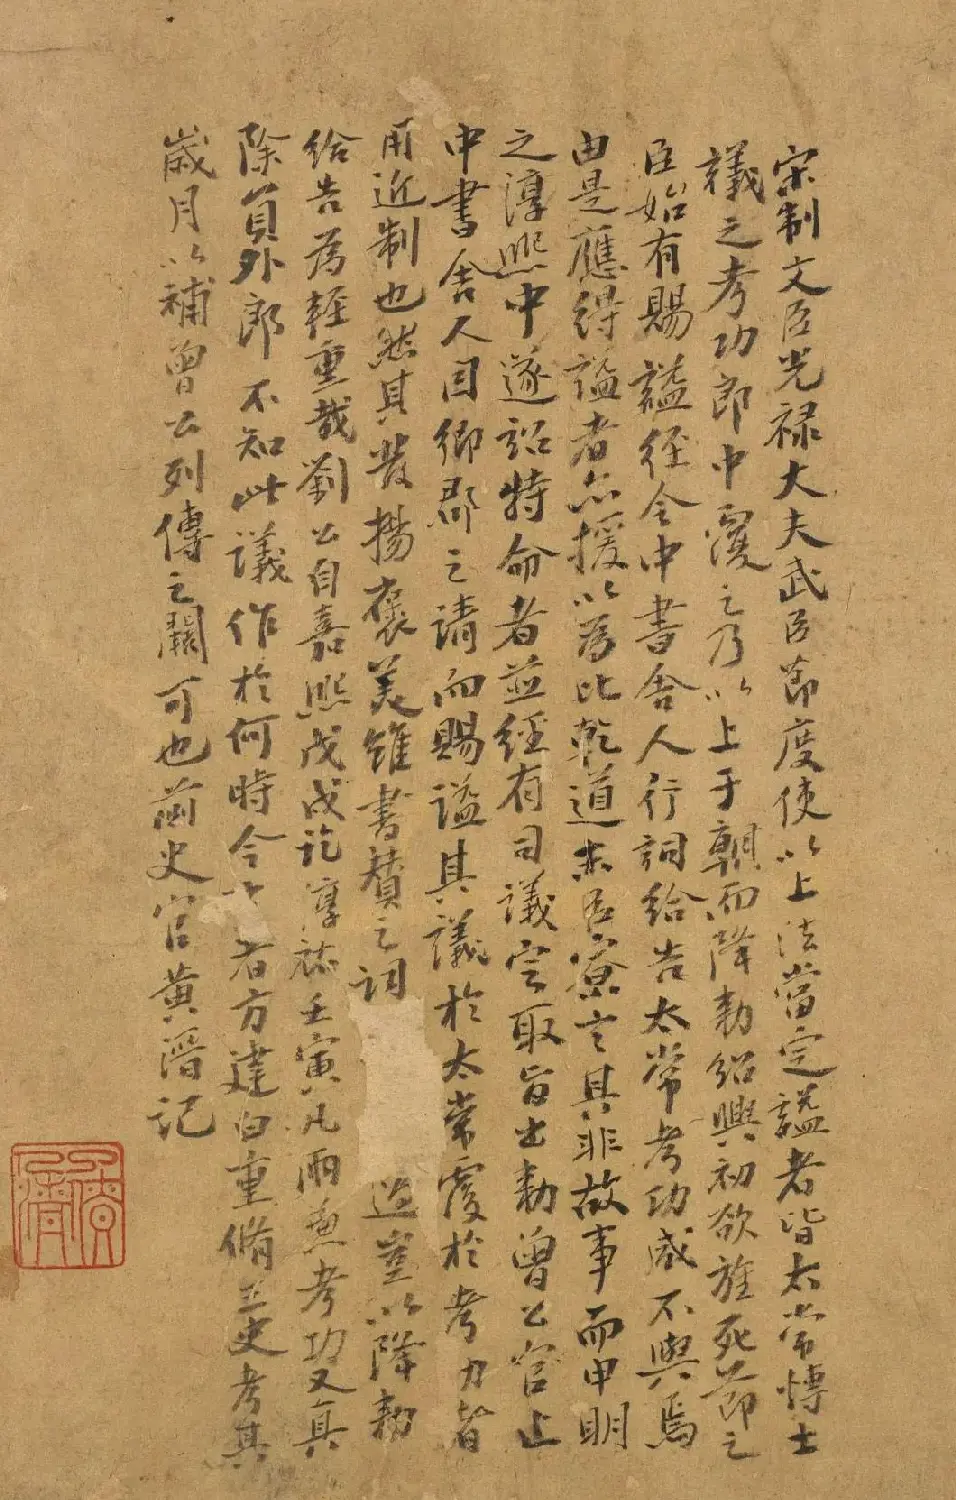 宋制文臣光祿大夫武臣節度使以上法當定謚者皆太常博士
議之考功郎中覆之乃以上于朝而降勅紹興初欲旌死節之
臣始有賜謚徑令中書舍人行詞給告太常考功咸不與焉
由是應得謚者亦援以為比乾道末臣寮言其非故事而申明
之淳熙中遂詔特命者並經有司議定取旨出勅曾公官止
中書舍人因鄉郡之請而賜謚其議於太常覆於考功者
用近制也然其發揚褒美雖書贊之詞 豈以降勅
給告為輕重哉劉公自嘉熙戊戌訖淳祐壬寅凡兩兼考功又真
除員外郎不知此議作於何時今 者方建白重脩三史考其
歲月以補曾公列傳之闕可也前史官黃溍記